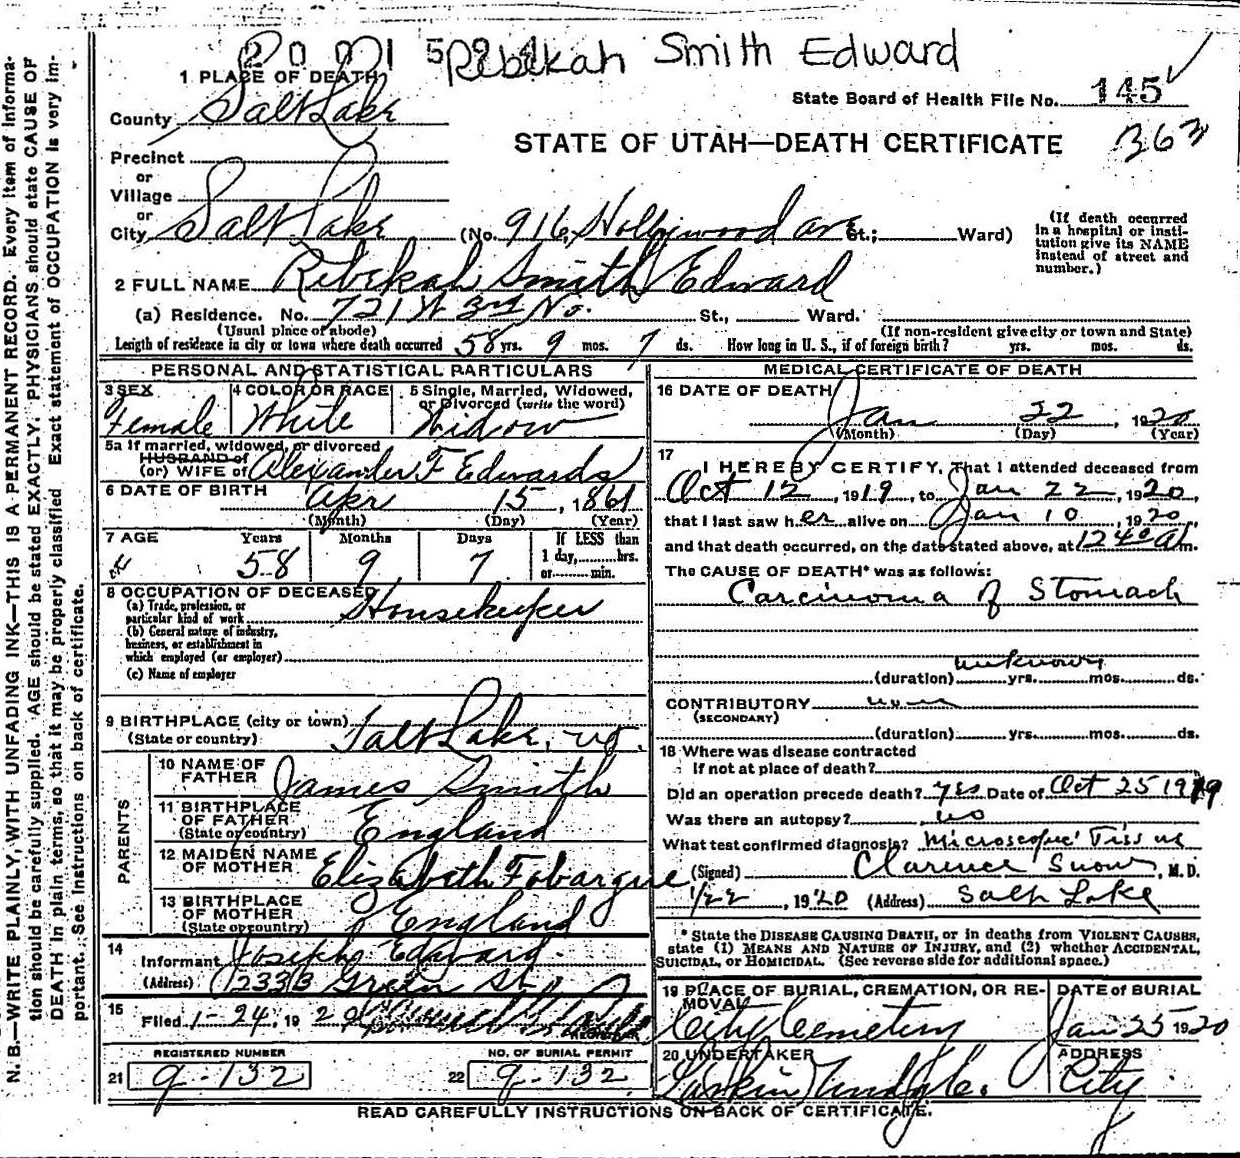 20 01 5 Rebekah Smith Edward
1 PLACE OF DEATH
County Salt Lake
State Board of Health File No. 145
363
STATE OF UTAH—DEATH CERTIFICATE
Precinct
or
Village
or
City Salt Lake (No. 916 Hollywood ave St.; Ward)
(If death occurred in a hospital or institution give its NAME instead of street and number.)
2 FULL NAME Rebekah Smith Edward
(a) Residence. No. 721 W 3rd No. St., Ward.
(Usual place of abode) (If non-resident give city or town and State)
Length of residence in city or town where death occurred 58 yrs. 9 mos. 7 ds. How long in U. S., if of foreign birth? yrs. mos. ds.
PERSONAL AND STATISTICAL PARTICULARS
3 SEX Female
4 COLOR OR RACE White
5 Single, Married, Widowed, or Divorced (write the word) Widow
5a If married, widowed, or divorced
HUSBAND of
(or) WIFE of Alexander F Edwards
6 DATE OF BIRTH Apr 15, 1861
(Month) (Day) (Year)
7 AGE Years Months Days If LESS than
58 9 7 1 day,......hrs.
or......min.
8 OCCUPATION OF DECEASED
(a) Trade, profession, or particular kind of work Housekeeper
(b) General nature of industry, business, or establishment in which employed (or employer)
(c) Name of employer
9 BIRTHPLACE (city or town) Salt Lake, ut.
(State or country)
PARENTS
10 NAME OF FATHER James Smith
11 BIRTHPLACE OF FATHER England
(State or country)
12 MAIDEN NAME OF MOTHER Elizabeth Fobargue
13 BIRTHPLACE OF MOTHER England
(State or country)
14 Informant Joseph Edward
(Address) 1233 Green St.
15 Filed 1-24, 1920
REGISTRAR
REGISTERED NUMBER
21 9-132
NO. OF BURIAL PERMIT
22 9-132
MEDICAL CERTIFICATE OF DEATH
16 DATE OF DEATH
Jan 22, 1920
(Month) (Day) (Year)
17 I HEREBY CERTIFY, That I attended deceased from
Oct 12, 1919, to Jan 22, 1920,
that I last saw her alive on Jan 10, 1920,
and that death occurred, on the date stated above, at 1240 a m.
The CAUSE OF DEATH* was as follows:
Carcinoma of Stomach
unknown
(duration) yrs. mos. ds.
CONTRIBUTORY none
(SECONDARY)
(duration) yrs. mos. ds.
18 Where was disease contracted
If not at place of death?
Did an operation precede death? yes Date of Oct 25 1919
Was there an autopsy? no
What test confirmed diagnosis? Microscopic Tissue
(Signed) Clarence Snow, M. D.
1/22, 1920 (Address) Salt Lake
* State the DISEASE CAUSING DEATH, or in deaths from VIOLENT CAUSES, state (1) MEANS AND NATURE OF INJURY, and (2) whether ACCIDENTAL, SUICIDAL, or HOMICIDAL. (See reverse side for additional space.)
19 PLACE OF BURIAL, CREMATION, OR REMOVAL City Cemetery
DATE of BURIAL Jan 25 1920
20 UNDERTAKER Larkin Und Co.
ADDRESS City
READ CAREFULLY INSTRUCTIONS ON BACK OF CERTIFICATE.
N. B.—WRITE PLAINLY, WITH UNFADING INK—THIS IS A PERMANENT RECORD. Every item of information should be carefully supplied. AGE should be stated EXACTLY. PHYSICIANS should state CAUSE OF DEATH in plain terms, so that it may be properly classified. Exact statement of OCCUPATION is very important. See instructions on back of certificate.